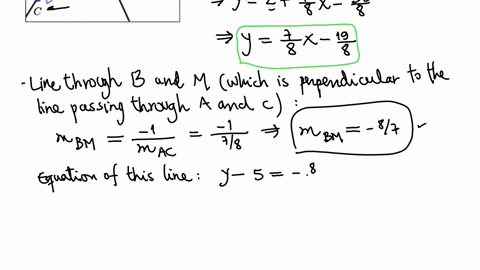 C
⇒ y = 2 + 7/8 x -
⇒ y = 7/8 x - 19/8
- Line through B and M (which is perpendicular to the
line passing through A and C) :
m_BM = -1/m_AC = -1/(7/8) ⇒ m_BM = -8/7 ✓
Equation of this line: y - 5 = -.8